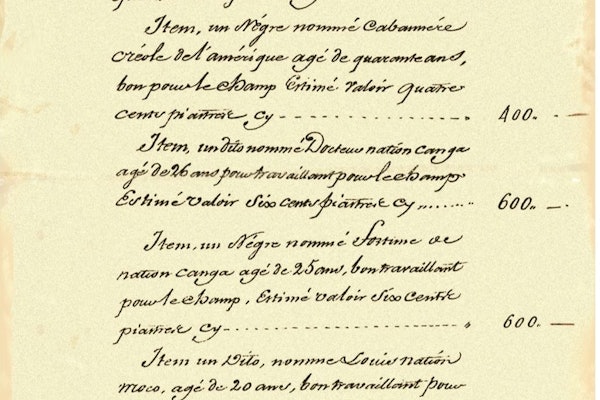 Item, un Négre nommé Cabannére
créole de l'amérique agé de quarante ans,
bon pour le champ Estimé valoir quatre
cents piastres cy - - - - - - - - - - - - - - - - - " 400.. —
Item, un dito nommé Docteur nation canga
agé de 26 ans pour travaillant pour le champ
Estimé valoir Six cents piastres cy ........ " 600.. —
Item, un Négre nommé Fortime de
nation canga agé de 25 ans, bon travaillant
pour le champ, Estimé valoir Six cents
piastres cy - - - - - - - - - - - - - - - - - - - - " 600.. —
Item un Dito, nommé Louis nation
moco, agé de 20 ans, bon travaillant pour